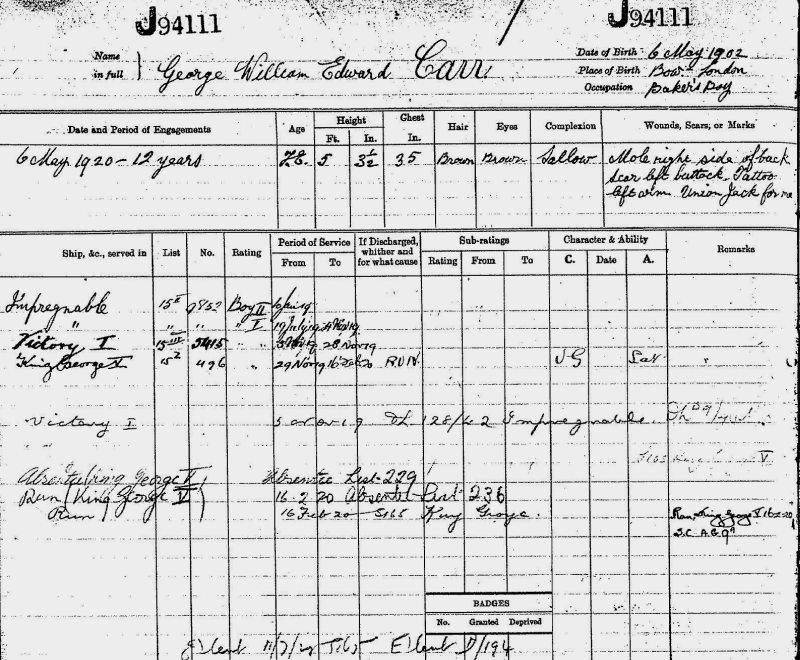 J94111 J94111
Name in full } George William Edward Carr
Date of Birth 6 May 1902
Place of Birth Bow - London
Occupation Baker's Boy
Date and Period of Engagements Age Height Ft. In. Chest In. Hair Eyes Complexion Wounds, Scars, or Marks
6 May 1920 - 12 years 5 3½ 35 Brown Brown Sallow Mole right side of back
Scar left buttock. Tattoo
left arm Union Jack
Ship, &c., served in List No. Rating Period of Service From To If Discharged, whither and for what cause Sub-ratings Rating From To Character & Ability C. Date A. Remarks
Impregnable 15 Boy II
" " " " I
Victory I 15 5415 " 28 Nov 19
King George V 15 496 " 29 Nov 19 16 Feb 20 RUN VG Sat
Victory I Impregnable.
King George V Absentee List 229
Run (King George V) 16-2-20 Absentee List 236
Run 16 Feb 20 5165 King George.
Run King George V 16-2-20
BADGES
No. Granted Deprived